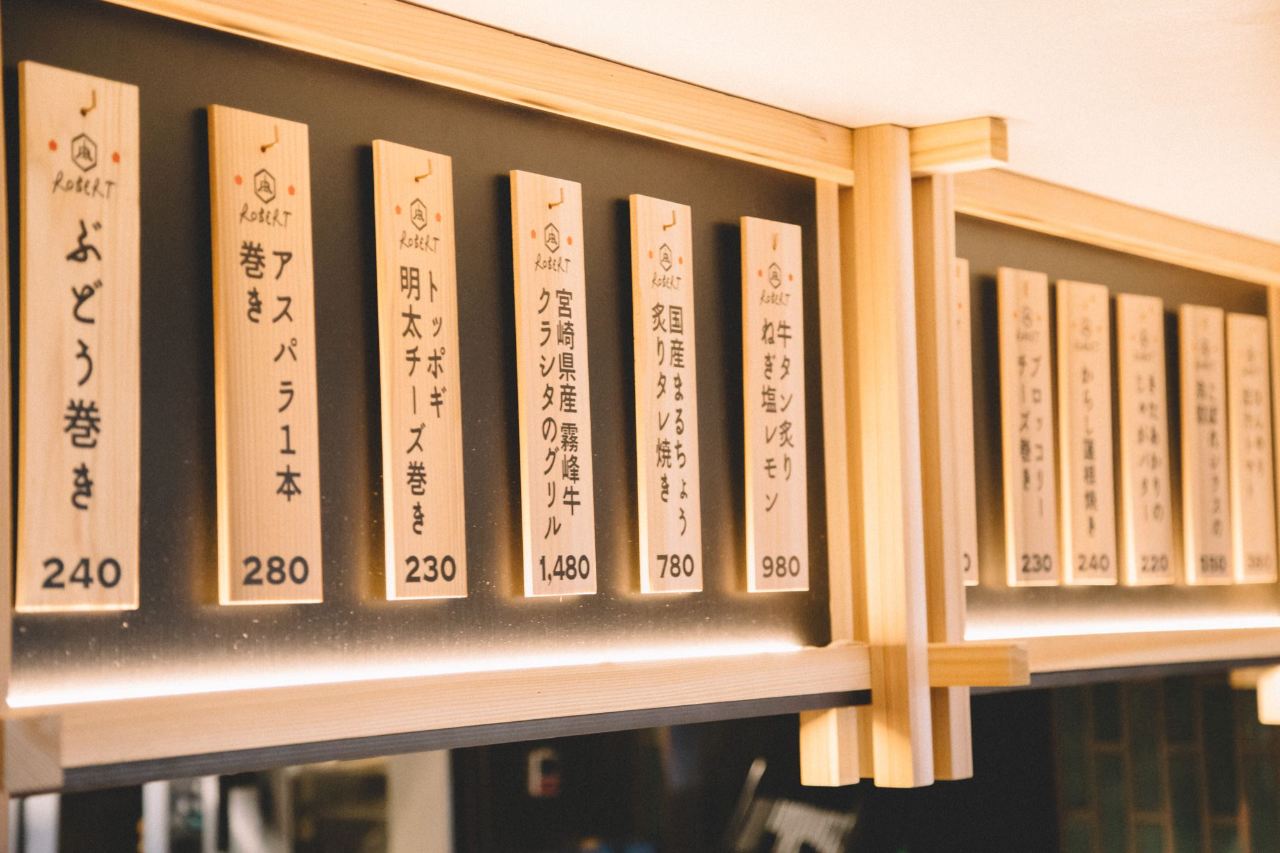 ROBERT
ぶどう巻き
240
ROBERT
アスパラ1本
巻き
280
ROBERT
トッポギ
明太チーズ巻き
230
ROBERT
宮崎県産 霧峰牛
クラシタのグリル
1,480
ROBERT
国産まるちょう
炙りタレ焼き
780
ROBERT
牛タン炙り
ねぎ塩レモン
980
ブロッコリー
チーズ巻き
230
からし蓮根焼き
240
きたあかりの
じゃがバター
220
550